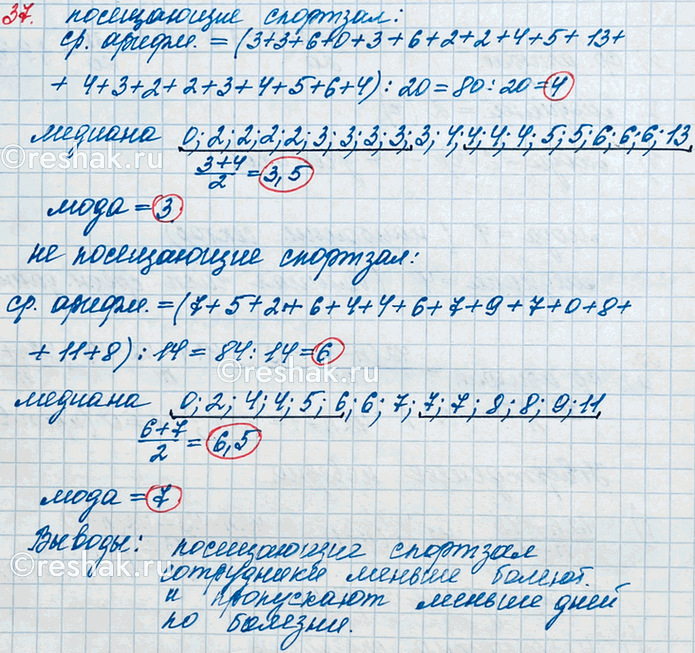 37. посещающие спортзал:
ср. арифм. = (3+3+6+0+3+6+2+2+4+5+13+
+ 4+3+2+2+3+4+5+6+4) : 20 = 80 : 20 = 4
медиана 0; 2; 2; 2; 2; 3; 3; 3; 3; 3; 4; 4; 4; 4; 5; 5; 6; 6; 6; 13
(3+4)/2 = 3,5
мода = 3
не посещающие спортзал:
ср. арифм. = (7+5+2+6+4+4+6+7+9+7+0+8+
+ 11+8) : 14 = 84 : 14 = 6
медиана 0; 2; 4; 4; 5; 6; 6; 7; 7; 7; 8; 8; 9; 11
(6+7)/2 = 6,5
мода = 7
Выводы: посещающие спортзал
сотрудники меньше болеют
и пропускают меньше дней
по болезни.
©reshak.ru
©reshak.ru
©reshak.ru